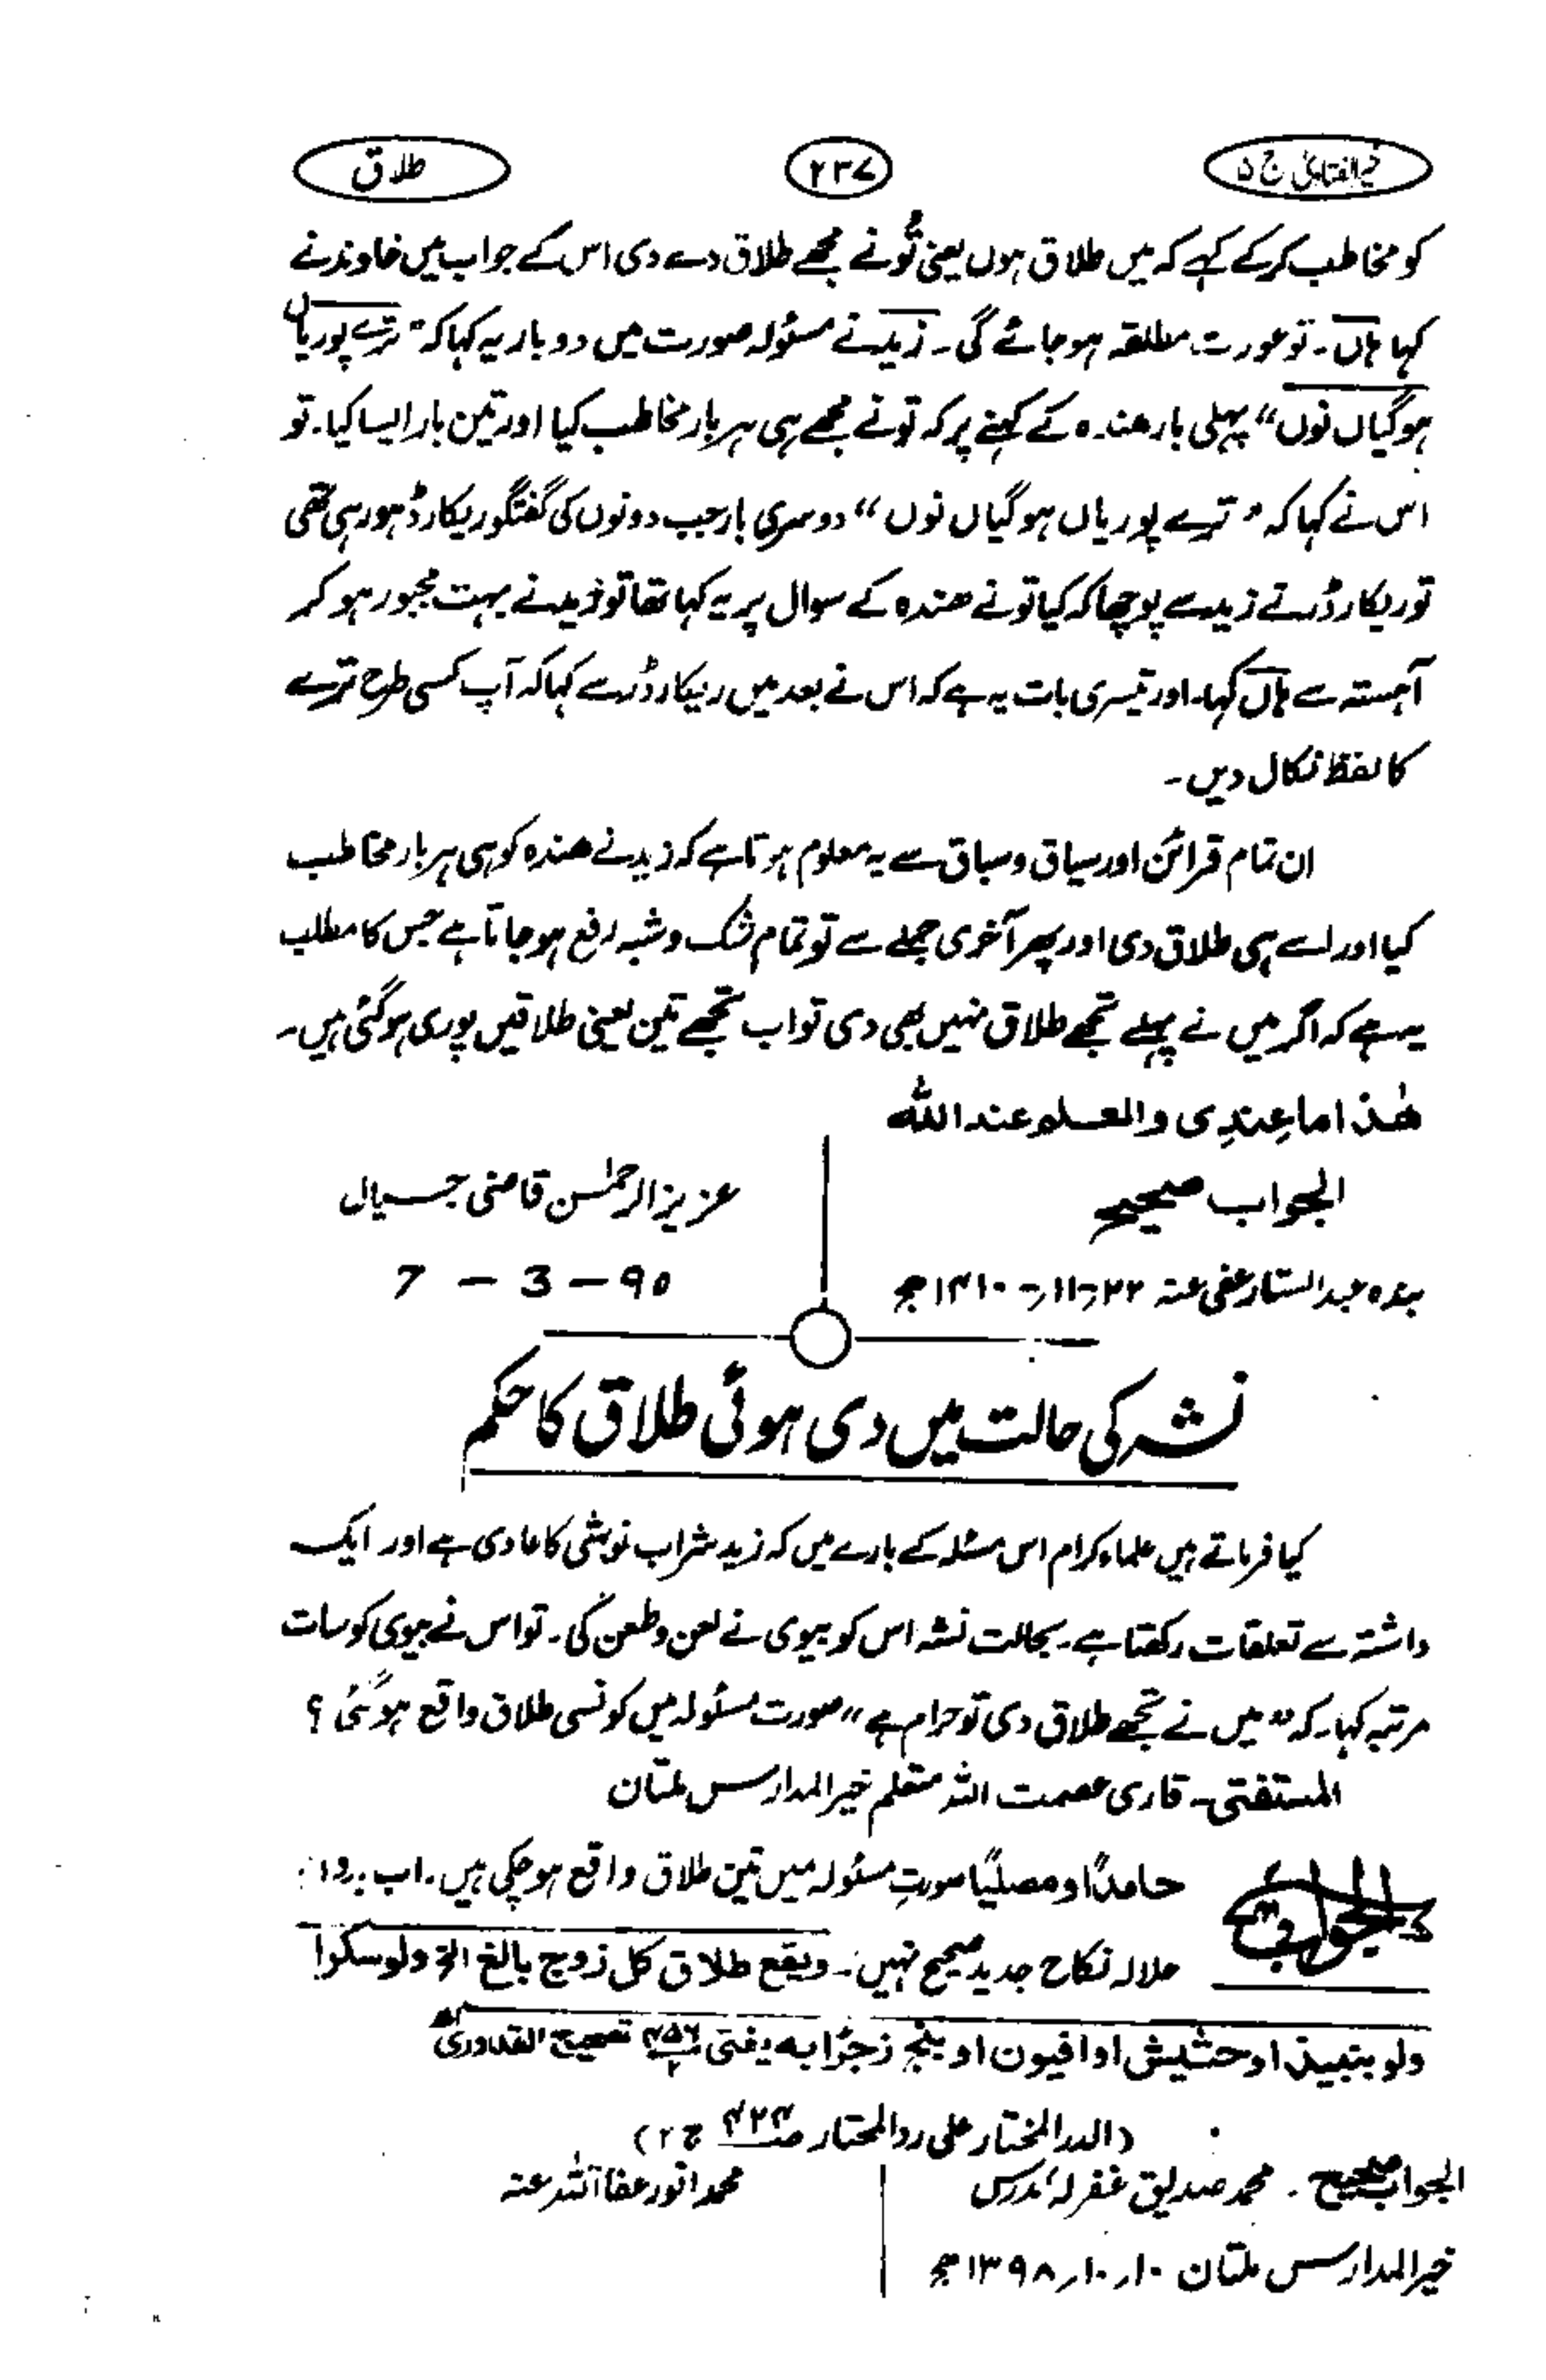 خیر الفتاویٰ ج ۵
۲۳۷
طلاق
کو مخاطب کرکے کہے کہ میں طلاق ہوں یعنی تُو نے مجھے طلاق دے دی اس کے جواب میں خاوند نے
کہا ہاں۔ تو عورت مطلقہ ہو جائے گی۔ زید نے مسئولہ صورت میں دو بار یہ کہا کہ "ترے پوریاں
ہوگیاں نوں" پہلی بار ھندہ کے کہنے پر کہ تو نے مجھے ہی ہر بار مخاطب کیا اور تین بار ایسا کیا۔ تو
اس نے کہا کہ "ترے پوریاں ہوگیاں نوں" دوسری بار جب دونوں کی گفتگو ریکارڈ ہو رہی تھی
تو ریکارڈر نے زید سے پوچھا کہ کیا تو نے ھندہ کے سوال پر یہ کہا تھا تو زید نے بہت مجبور ہو کر
آہستہ سے ہاں کہا۔ اور تیسری بات یہ ہے کہ اس نے بعد میں ریکارڈر سے کہا کہ آپ کسی طرح ترے
کا لفظ نکال دیں۔
ان تمام قرائن اور سیاق و سباق سے یہ معلوم ہوتا ہے کہ زید نے ھندہ کو ہی ہر بار مخاطب
کیا اور اسے ہی طلاق دی اور پھر آخری جملے سے تو تمام شک و شبہ رفع ہو جاتا ہے جس کا مطلب
یہ ہے کہ اگر میں نے پہلے تجھے طلاق نہیں بھی دی تو اب تجھے تین یعنی طلاقیں پوری ہوگئی ہیں۔
ھٰذا ما عِندِی والعلم عند اللہ
الجواب صحیح
عزیز الرحمٰن قاضی جسیال
بندہ عبدالستار عفی عنہ ۲۲ر۱۱ر۱۴۱۰ھ
7 – 3 – ۹۵
نشہ کی حالت میں دی ہوئی طلاق کا حکم
کیا فرماتے ہیں علماء کرام اس مسئلہ کے بارے میں کہ زید شراب نوشی کا عادی ہے اور ایک
داشتہ سے تعلقات رکھتا ہے۔ بحالت نشہ اس کو بیوی نے لعن و طعن کی۔ تو اس نے بیوی کو سات
مرتبہ کہا۔ کہ "میں نے تجھے طلاق دی تو حرام ہے" صورت مسئولہ میں کونسی طلاق واقع ہوگئی؟
المستفتی۔ قاری عصمت اللہ متعلم خیر المدارس ملتان
الجواب حامدًا و مصلیًا صورتِ مسئولہ میں تین طلاق واقع ہو چکی ہیں۔ اب بدون
حلالہ نکاح جدید صحیح نہیں۔ ویقع طلاق کل زوج بالغ الخ ولو سکراً
ولو بنبیذ او حشیش او افیون او بنج زجرًا بہ یفتی تصحیح القدوری
(الدر المختار علی رد المحتار صـ۴۲۴ ج ۲)
الجواب صحیح۔ محمد صدیق غفرلہ' مدرس
محمد انور عفا اللہ عنہ
خیر المدارس ملتان ۱۰ر۱۰ر۱۳۹۸ھ